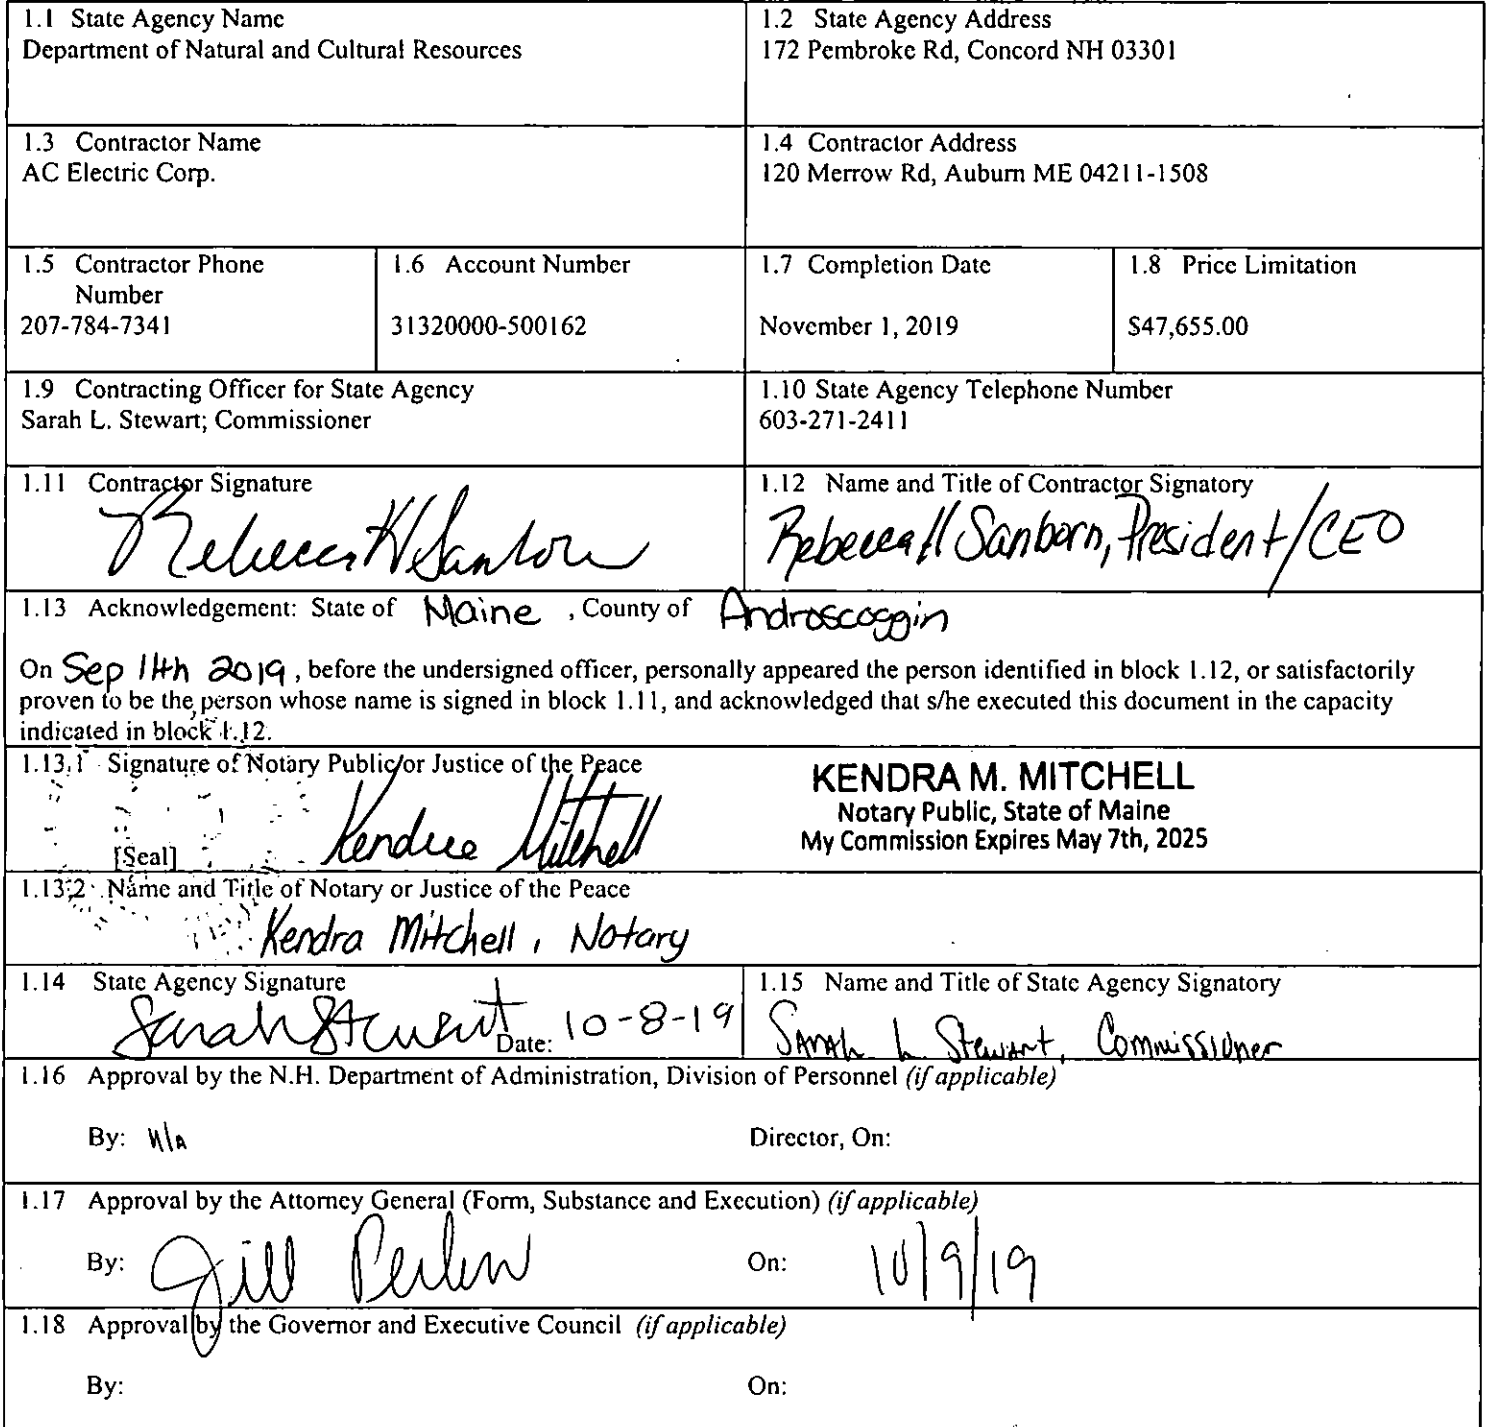 1.1 State Agency Name
Department of Natural and Cultural Resources
1.2 State Agency Address
172 Pembroke Rd, Concord NH 03301
1.3 Contractor Name
AC Electric Corp.
1.4 Contractor Address
120 Merrow Rd, Auburn ME 04211-1508
1.5 Contractor Phone
Number
207-784-7341
1.6 Account Number
31320000-500162
1.7 Completion Date
November 1, 2019
1.8 Price Limitation
$47,655.00
1.9 Contracting Officer for State Agency
Sarah L. Stewart; Commissioner
1.10 State Agency Telephone Number
603-271-2411
1.11 Contractor Signature
Rebecca H Sanborn
1.12 Name and Title of Contractor Signatory
Rebecca H Sanborn, President/CEO
1.13 Acknowledgement: State of Maine , County of Androscoggin
On Sep 11th 2019 , before the undersigned officer, personally appeared the person identified in block 1.12, or satisfactorily
proven to be the person whose name is signed in block 1.11, and acknowledged that s/he executed this document in the capacity
indicated in block 1.12.
1.13.1 Signature of Notary Public or Justice of the Peace
Kendra Mitchell
[Seal]
KENDRA M. MITCHELL
Notary Public, State of Maine
My Commission Expires May 7th, 2025
1.13.2 Name and Title of Notary or Justice of the Peace
Kendra Mitchell, Notary
1.14 State Agency Signature
Sarah Stewart Date: 10-8-19
1.15 Name and Title of State Agency Signatory
Sarah L. Stewart, Commissioner
1.16 Approval by the N.H. Department of Administration, Division of Personnel (if applicable)
By: N/A Director, On:
1.17 Approval by the Attorney General (Form, Substance and Execution) (if applicable)
By: Jill Perlow On: 10/9/19
1.18 Approval by the Governor and Executive Council (if applicable)
By: On: